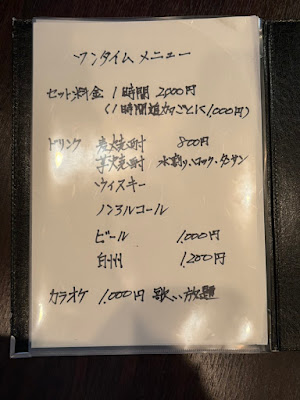 ワンタイム メニュー
セット料金 1時間 2,000円
(1時間追加ごとに1,000円)
ドリンク 麦焼酎 800円
芋焼酎 水割り、ロック、タンサン
ウィスキー
ノンアルコール
ビール 1,000円
白州 1,200円
カラオケ 1,000円 歌い放題